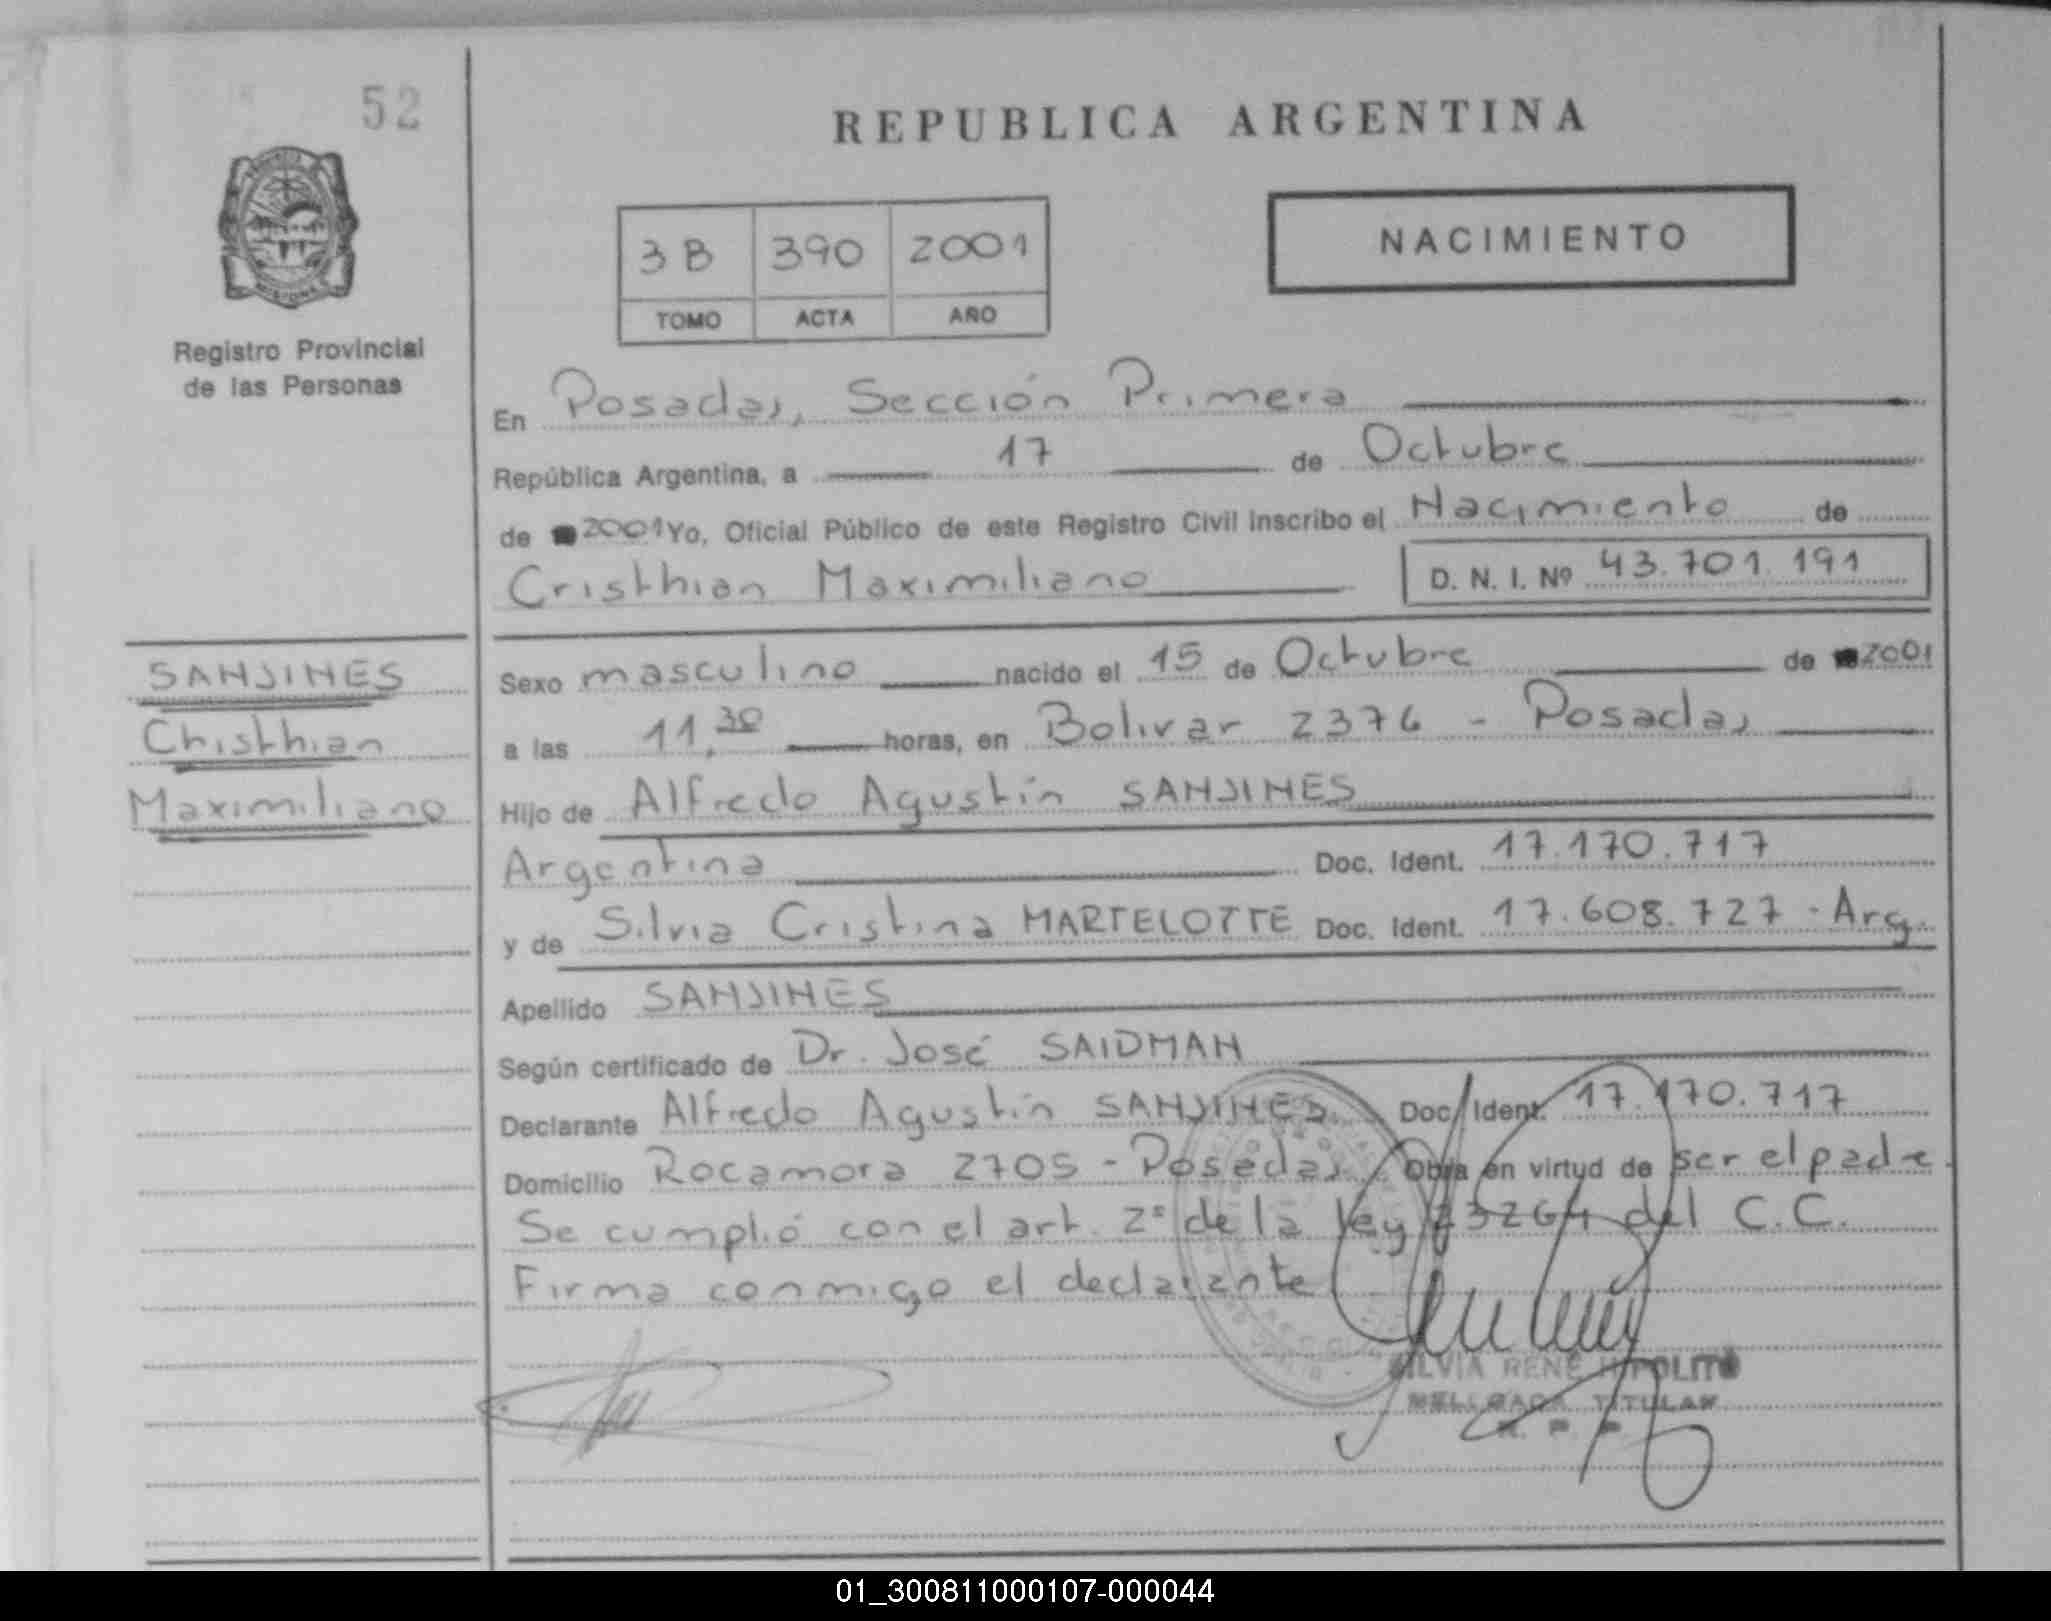 52
REPUBLICA ARGENTINA
3B 390 2001
TOMO ACTA AÑO
NACIMIENTO
Registro Provincial
de las Personas
En Posadas, Sección Primera
República Argentina, a 17 de Octubre
de 2001 Yo, Oficial Público de este Registro Civil inscribo el Nacimiento de
Cristhian Maximiliano D. N. I. Nº 43.701.191
SANJINES
Christhian
Maximiliano
Sexo masculino nacido el 15 de Octubre de 2001
a las 11,30 horas, en Bolivar 2376 - Posadas
Hijo de Alfredo Agustín SANJINES
Argentina Doc. Ident. 17.170.717
y de Silvia Cristina MARTELOTTE Doc. Ident. 17.608.727 - Arg.
Apellido SANJINES
Según certificado de Dr. José SAIDMAN
Declarante Alfredo Agustín SANJINES Doc. Ident. 17.170.717
Domicilio Rocamora 2705 - Posadas Obra en virtud de ser el padre.
Se cumplió con el art. 2º de la ley 23264 del C.C.
Firma conmigo el declarante
SILVIA RENE HIPOLITO
TITULAR
01_300811000107-000044